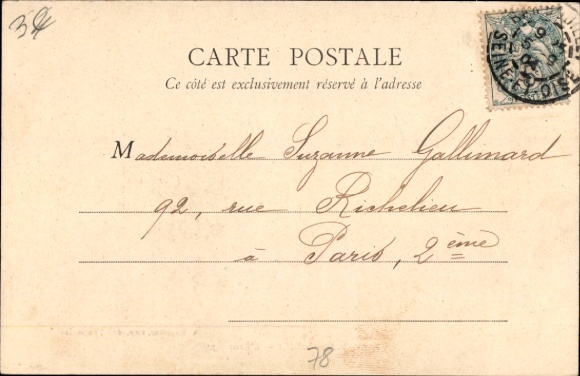 CARTE POSTALE
Ce côté est exclusivement réservé à l'adresse
Mademoiselle Suzanne Gallimard
92, rue Richelieu
à Paris, 2ème
78